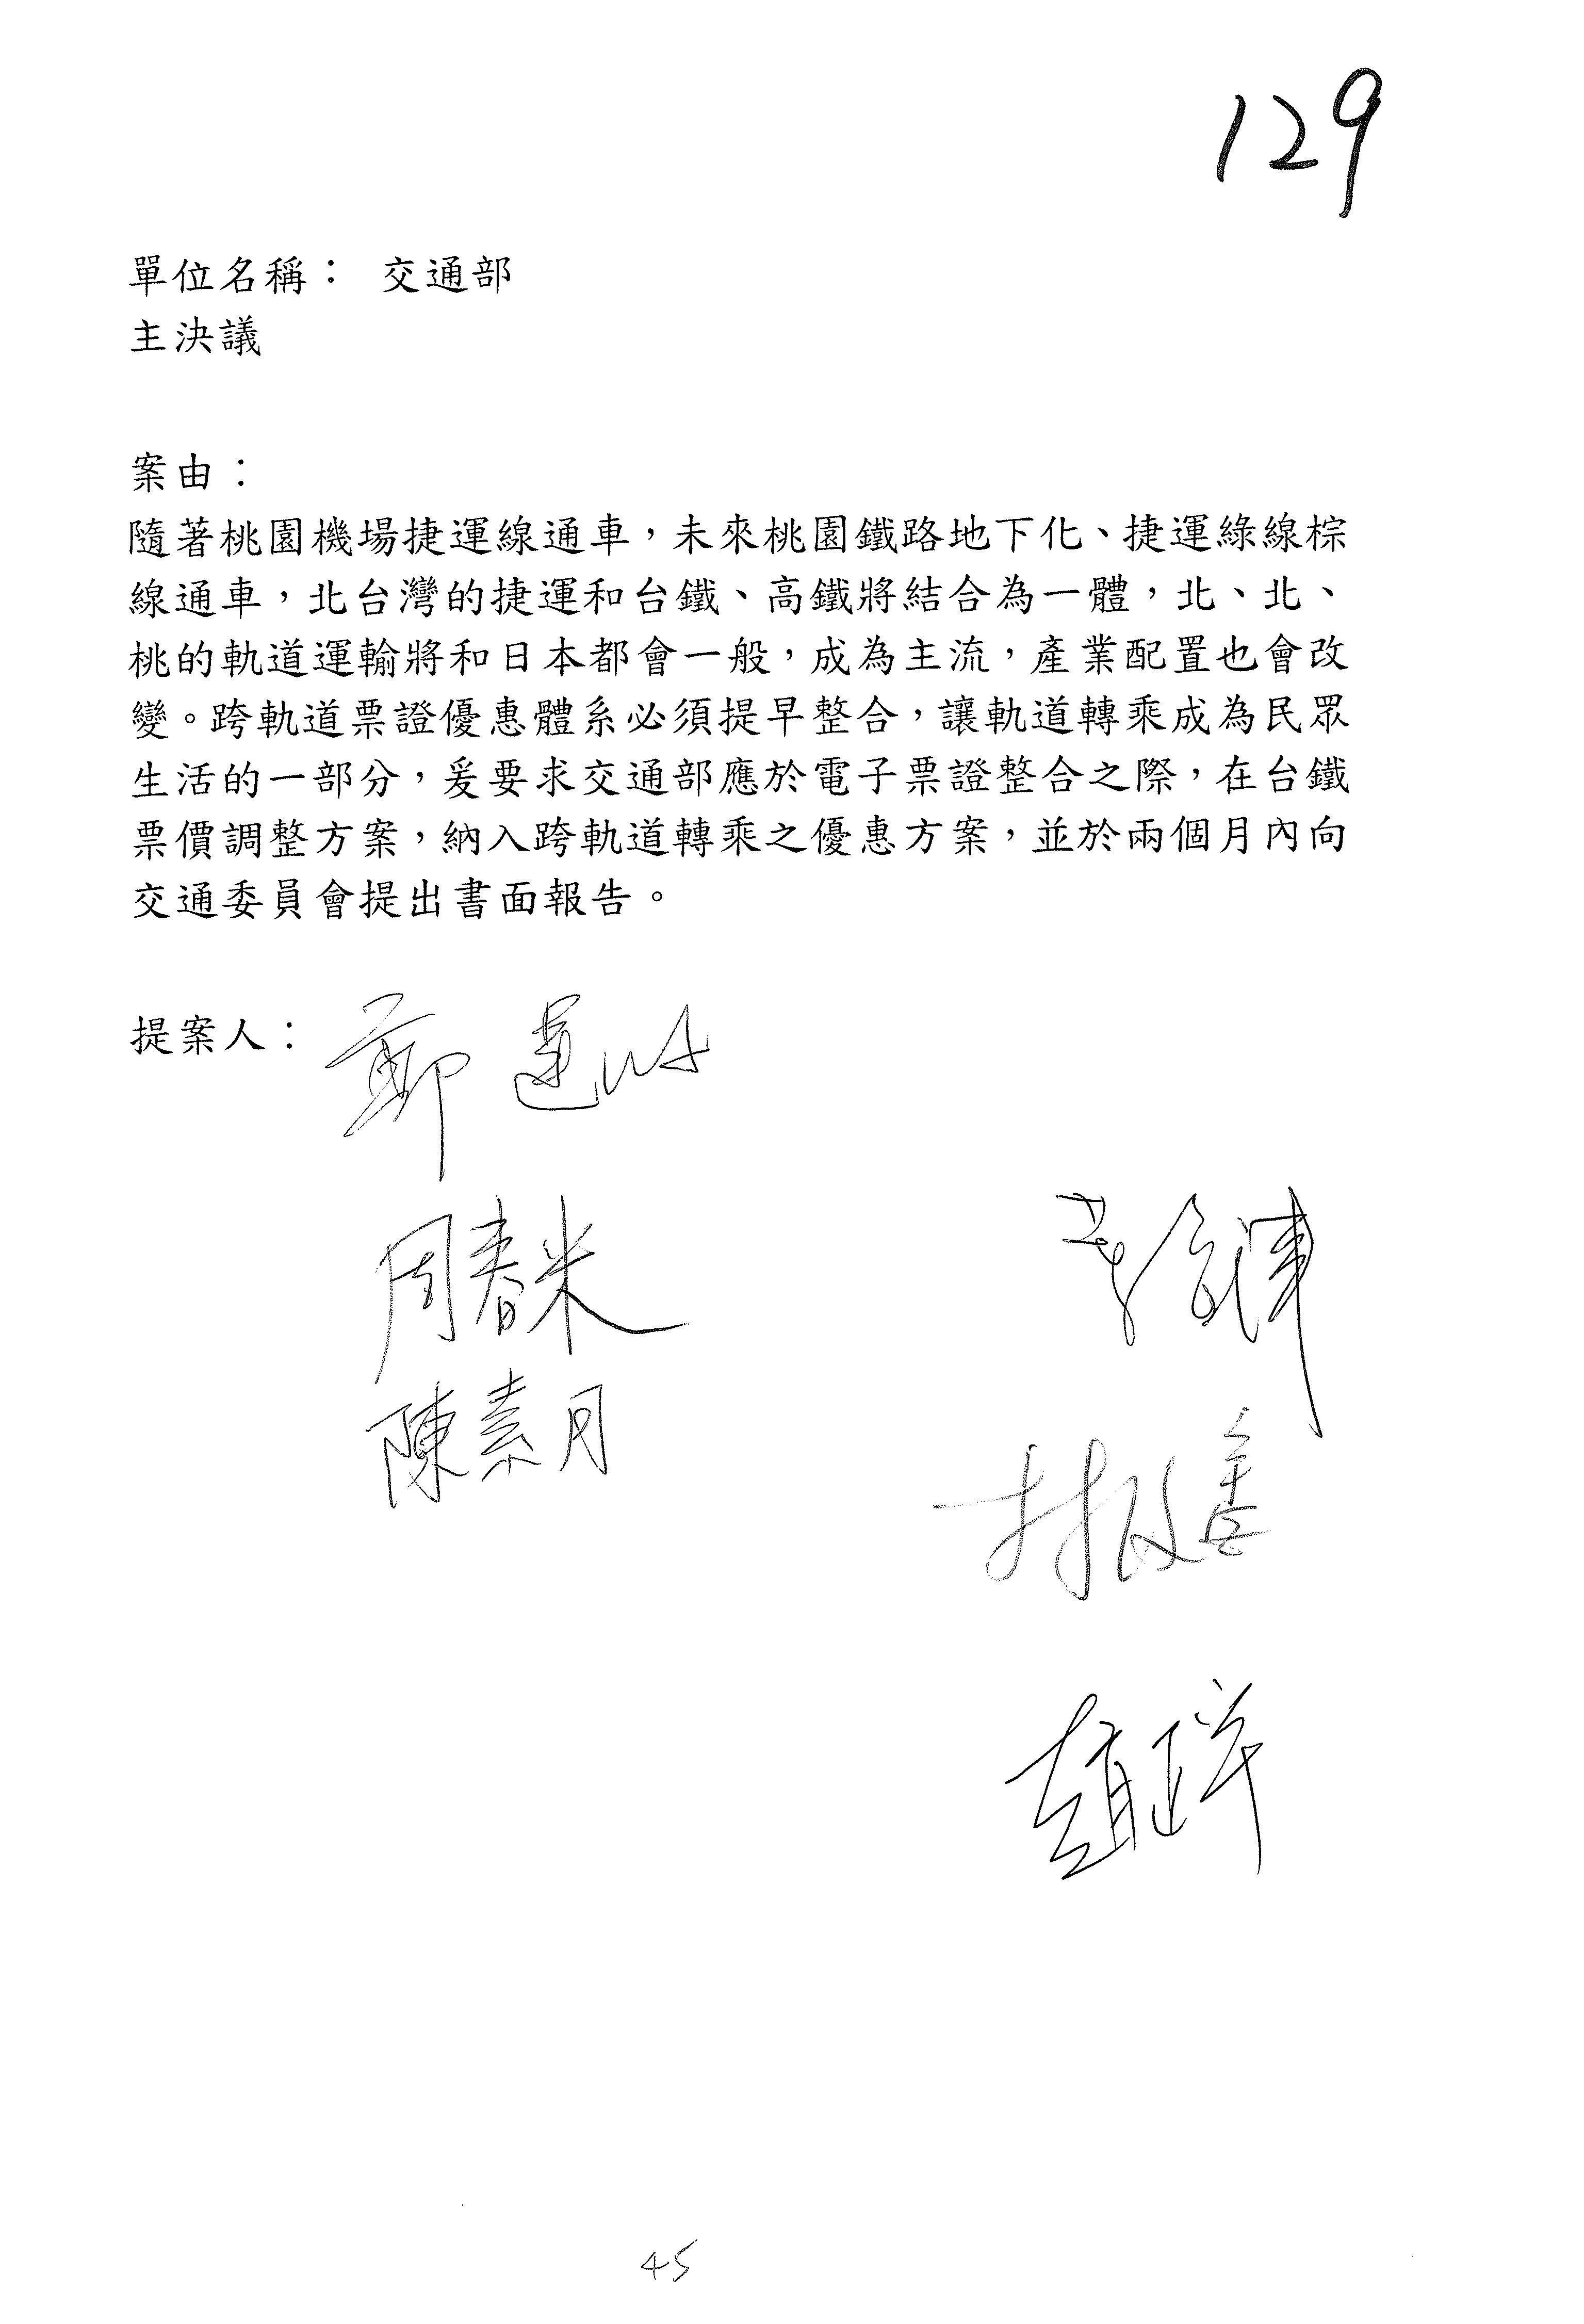 129
單位名稱： 交通部
主決議
案由：
隨著桃園機場捷運線通車，未來桃園鐵路地下化、捷運綠線棕
線通車，北台灣的捷運和台鐵、高鐵將結合為一體，北、北、
桃的軌道運輸將和日本都會一般，成為主流，產業配置也會改
變。跨軌道票證優惠體系必須提早整合，讓軌道轉乘成為民眾
生活的一部分，爰要求交通部應於電子票證整合之際，在台鐵
票價調整方案，納入跨軌道轉乘之優惠方案，並於兩個月內向
交通委員會提出書面報告。
提案人：
周春米
陳素月
45